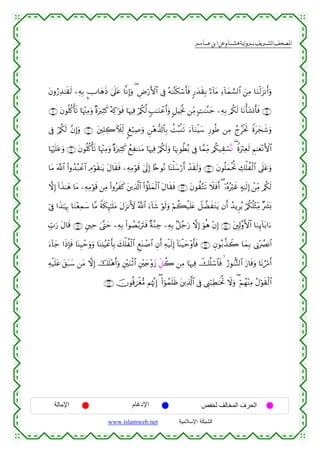 المصحف الشريف برواية هشام عن ابن عامر
وَأَنزَلْنَا مِنَ ٱلسَّمَآءِ مَآءًۢ بِقَدَرٍ فَأَسْكَنَّٰهُ فِى ٱلْأَرْضِ ۖ وَإِنَّا عَلَىٰ ذَهَابٍۭ بِهِۦ لَقَٰدِرُونَ
۝ فَأَنشَأْنَا لَكُم بِهِۦ جَنَّٰتٍ مِّن نَّخِيلٍ وَأَعْنَٰبٍ لَّكُمْ فِيهَا فَوَٰكِهُ كَثِيرَةٌ وَمِنْهَا تَأْكُلُونَ ۝
وَشَجَرَةً تَخْرُجُ مِن طُورِ سَيْنَآءَ تَنۢبُتُ بِٱلدُّهْنِ وَصِبْغٍ لِّلْءَاكِلِينَ ۝ وَإِنَّ لَكُمْ فِى
ٱلْأَنْعَٰمِ لَعِبْرَةً ۖ نَّسْقِيكُم مِّمَّا فِى بُطُونِهَا وَلَكُمْ فِيهَا مَنَٰفِعُ كَثِيرَةٌ وَمِنْهَا تَأْكُلُونَ ۝ وَعَلَيْهَا
وَعَلَى ٱلْفُلْكِ تُحْمَلُونَ ۝ وَلَقَدْ أَرْسَلْنَا نُوحًا إِلَىٰ قَوْمِهِۦ فَقَالَ يَٰقَوْمِ ٱعْبُدُوا۟ ٱللَّهَ مَا
لَكُم مِّنْ إِلَٰهٍ غَيْرُهُۥٓ ۖ أَفَلَا تَتَّقُونَ ۝ فَقَالَ ٱلْمَلَؤُا۟ ٱلَّذِينَ كَفَرُوا۟ مِن قَوْمِهِۦ مَا هَٰذَآ إِلَّا
بَشَرٌ مِّثْلُكُمْ يُرِيدُ أَن يَتَفَضَّلَ عَلَيْكُمْ وَلَوْ شَآءَ ٱللَّهُ لَأَنزَلَ مَلَٰٓئِكَةً مَّا سَمِعْنَا بِهَٰذَا فِىٓ
ءَابَآئِنَا ٱلْأَوَّلِينَ ۝ إِنْ هُوَ إِلَّا رَجُلٌۢ بِهِۦ جِنَّةٌ فَتَرَبَّصُوا۟ بِهِۦ حَتَّىٰ حِينٍ ۝ قَالَ رَبِّ
ٱنصُرْنِى بِمَا كَذَّبُونِ ۝ فَأَوْحَيْنَآ إِلَيْهِ أَنِ ٱصْنَعِ ٱلْفُلْكَ بِأَعْيُنِنَا وَوَحْيِنَا فَإِذَا جَآءَ
أَمْرُنَا وَفَارَ ٱلتَّنُّورُ ۙ فَٱسْلُكْ فِيهَا مِن كُلِّ زَوْجَيْنِ ٱثْنَيْنِ وَأَهْلَكَ إِلَّا مَن سَبَقَ عَلَيْهِ
ٱلْقَوْلُ مِنْهُمْ ۖ وَلَا تُخَٰطِبْنِى فِى ٱلَّذِينَ ظَلَمُوٓا۟ ۖ إِنَّهُم مُّغْرَقُونَ ۝
الحرف المخالف لحفص الإدغام الإمالة
الشبكة الإسلامية www.islamweb.net